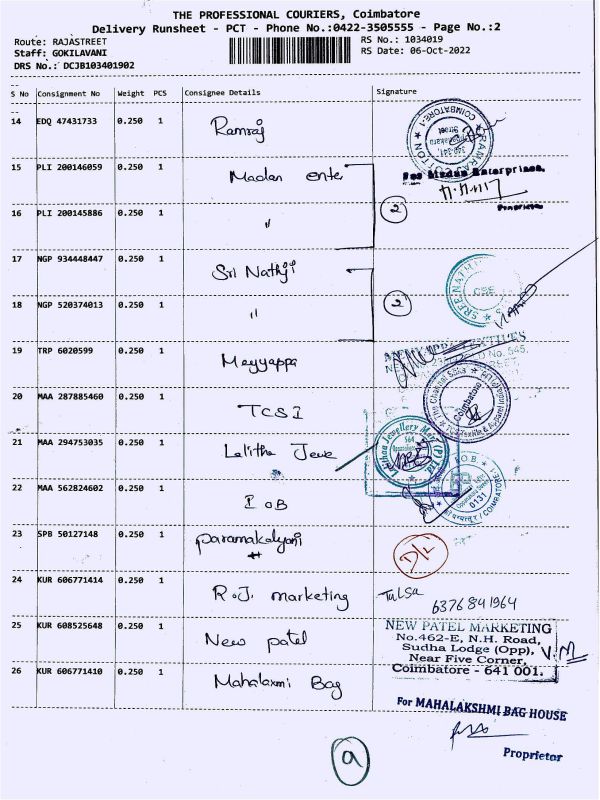 THE PROFESSIONAL COURIERS, Coimbatore
Delivery Runsheet - PCT - Phone No.:0422-3505555 - Page No.:2
Route: RAJASTREET
Staff: GOKILAVANI
DRS No.: DCJB103401902
RS No.: 1034019
RS Date: 06-Oct-2022
S No Consignment No Weight PCS Consignee Details Signature
14 EDQ 47431733 0.250 1 Ramraj
COIMBATORE-1
15 PLI 200146059 0.250 1 Madan enter
For Madan Enterprises,
Proprietor
16 PLI 200145886 0.250 1 " 2
17 NGP 934448447 0.250 1 Sri Nathji
SREE NATHJI
18 NGP 520374013 0.250 1 " 2
19 TRP 6020599 0.250 1 Meyyappa
20 MAA 287885460 0.250 1 TCSI
The Chennai Silks
Coimbatore
21 MAA 294753035 0.250 1 Lalitha Jewe
Lalithaa Jewellery Mart (P) Ltd
22 MAA 562824602 0.250 1 IOB
I.O.B.
0131
COIMBATORE-1
23 SPB 50127148 0.250 1 Paramakalyani
D/L
24 KUR 606771414 0.250 1 R.J. marketing
Tulsa
6376841964
25 KUR 608525648 0.250 1 New patel
NEW PATEL MARKETING
No.462-E, N.H. Road,
Sudha Lodge (Opp),
Near Five Corner,
Coimbatore - 641 001.
V.M
26 KUR 606771410 0.250 1 Mahalaxmi Bag
For MAHALAKSHMI BAG HOUSE
Proprietor
9